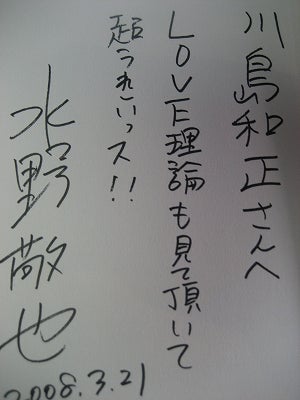 川島和正さんへ
LOVE理論も見て頂いて
超うれしいっス!!
水野敬也
2008.3.21